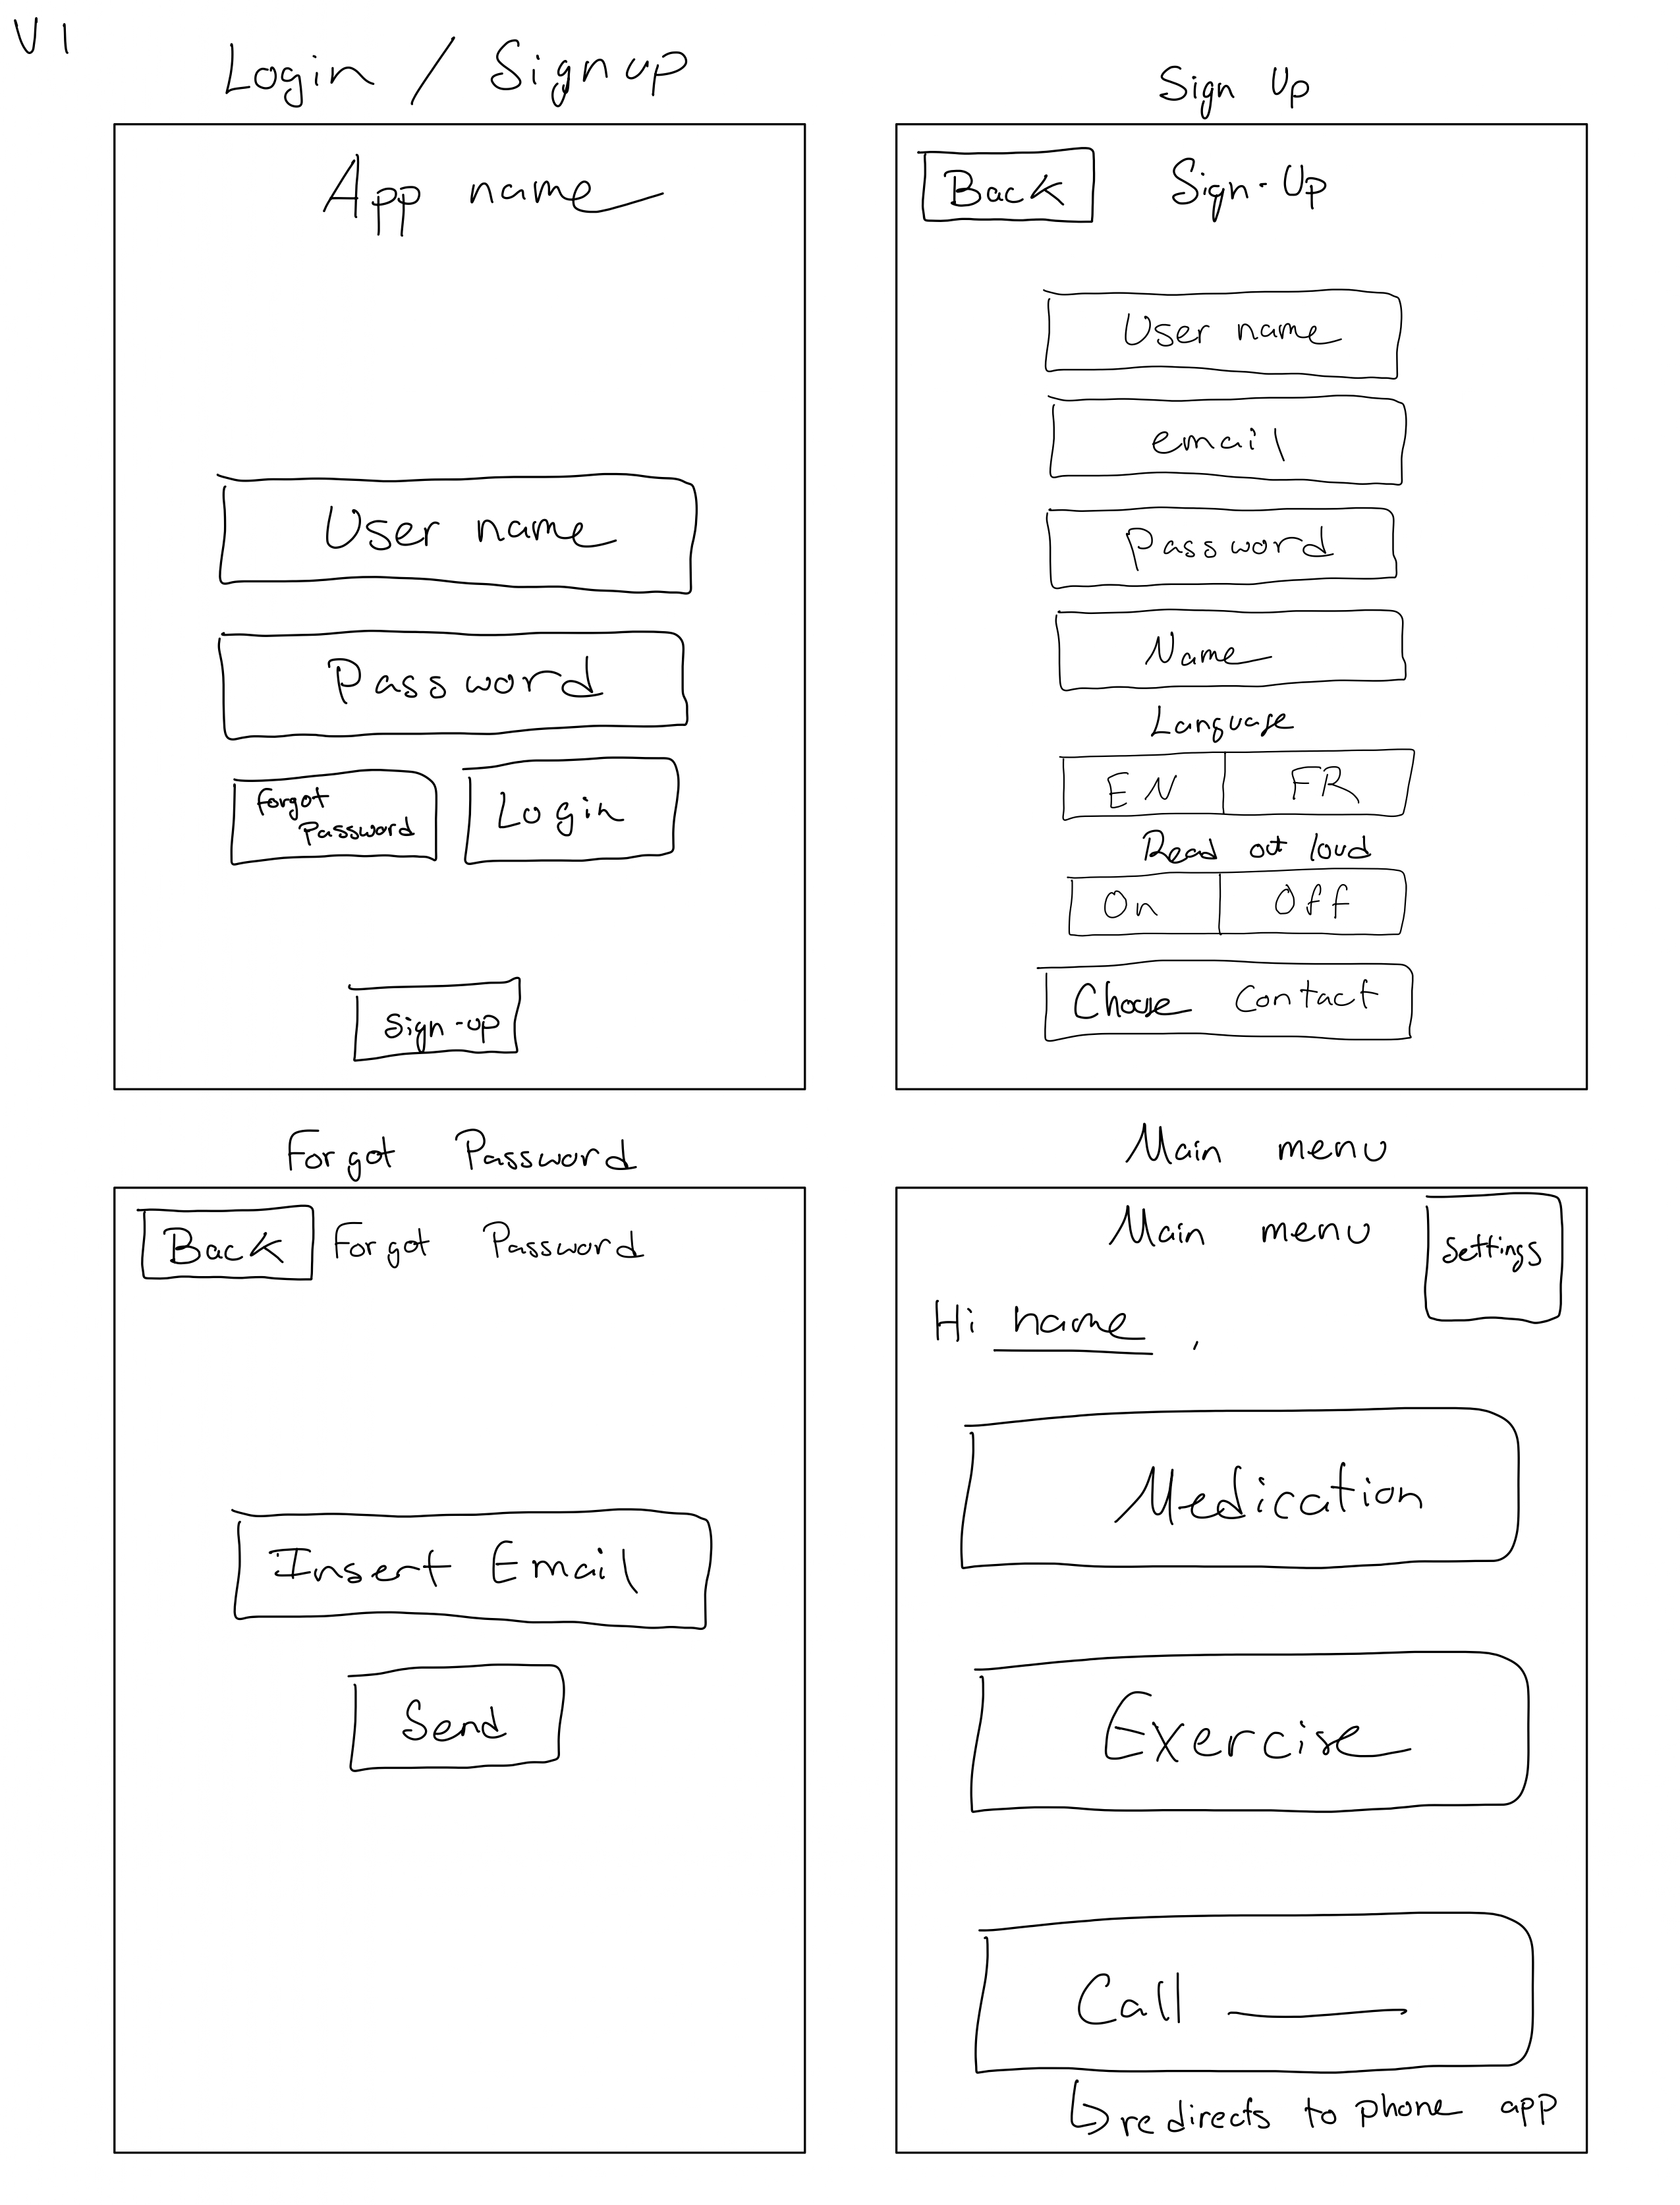 V1
Login / Signup
App name
User name
Password
Forgot
Password
Login
Sign-up
Sign Up
Back
Sign-Up
User name
email
Password
Name
Language
EN
FR
Read out loud
On
Off
Choose Contact
Forgot Password
Back
Forgot Password
Insert Email
Send
Main menu
Main menu
Settings
Hi name ,
Medication
Exercise
Call
redirects to phone app